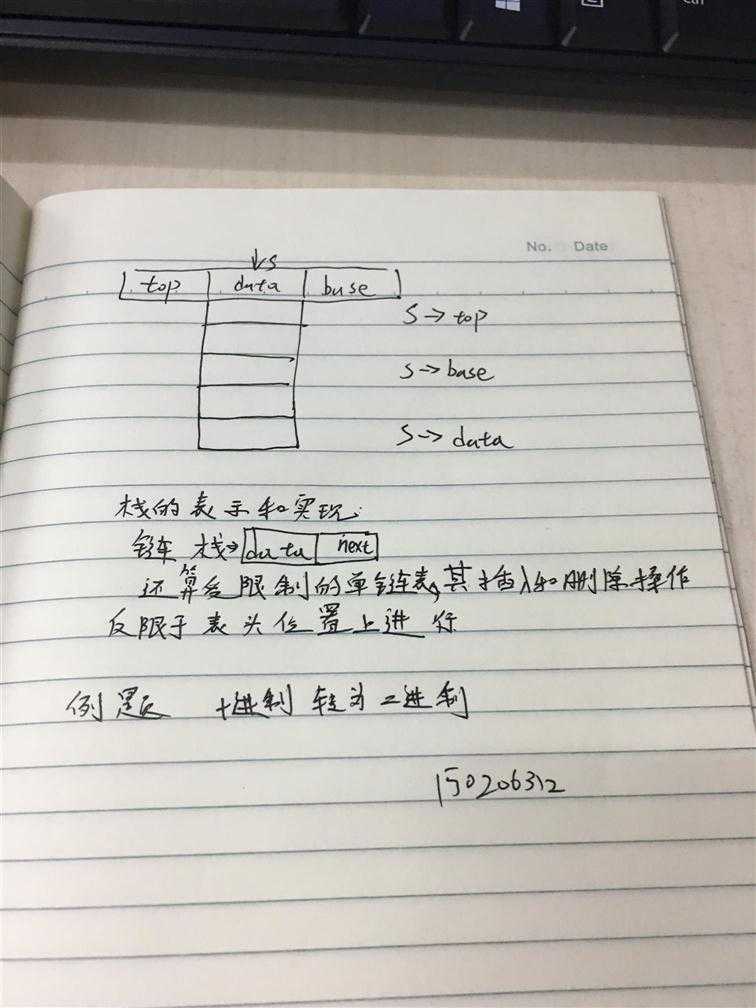 No. Date
↓s
top data base
s→top
s→base
s→data
栈的表示和实现:
链栈→data next
运算受限制的单链表,其插入和删除操作
仅限于表头位置上进行
例题 十进制转为二进制
150206312